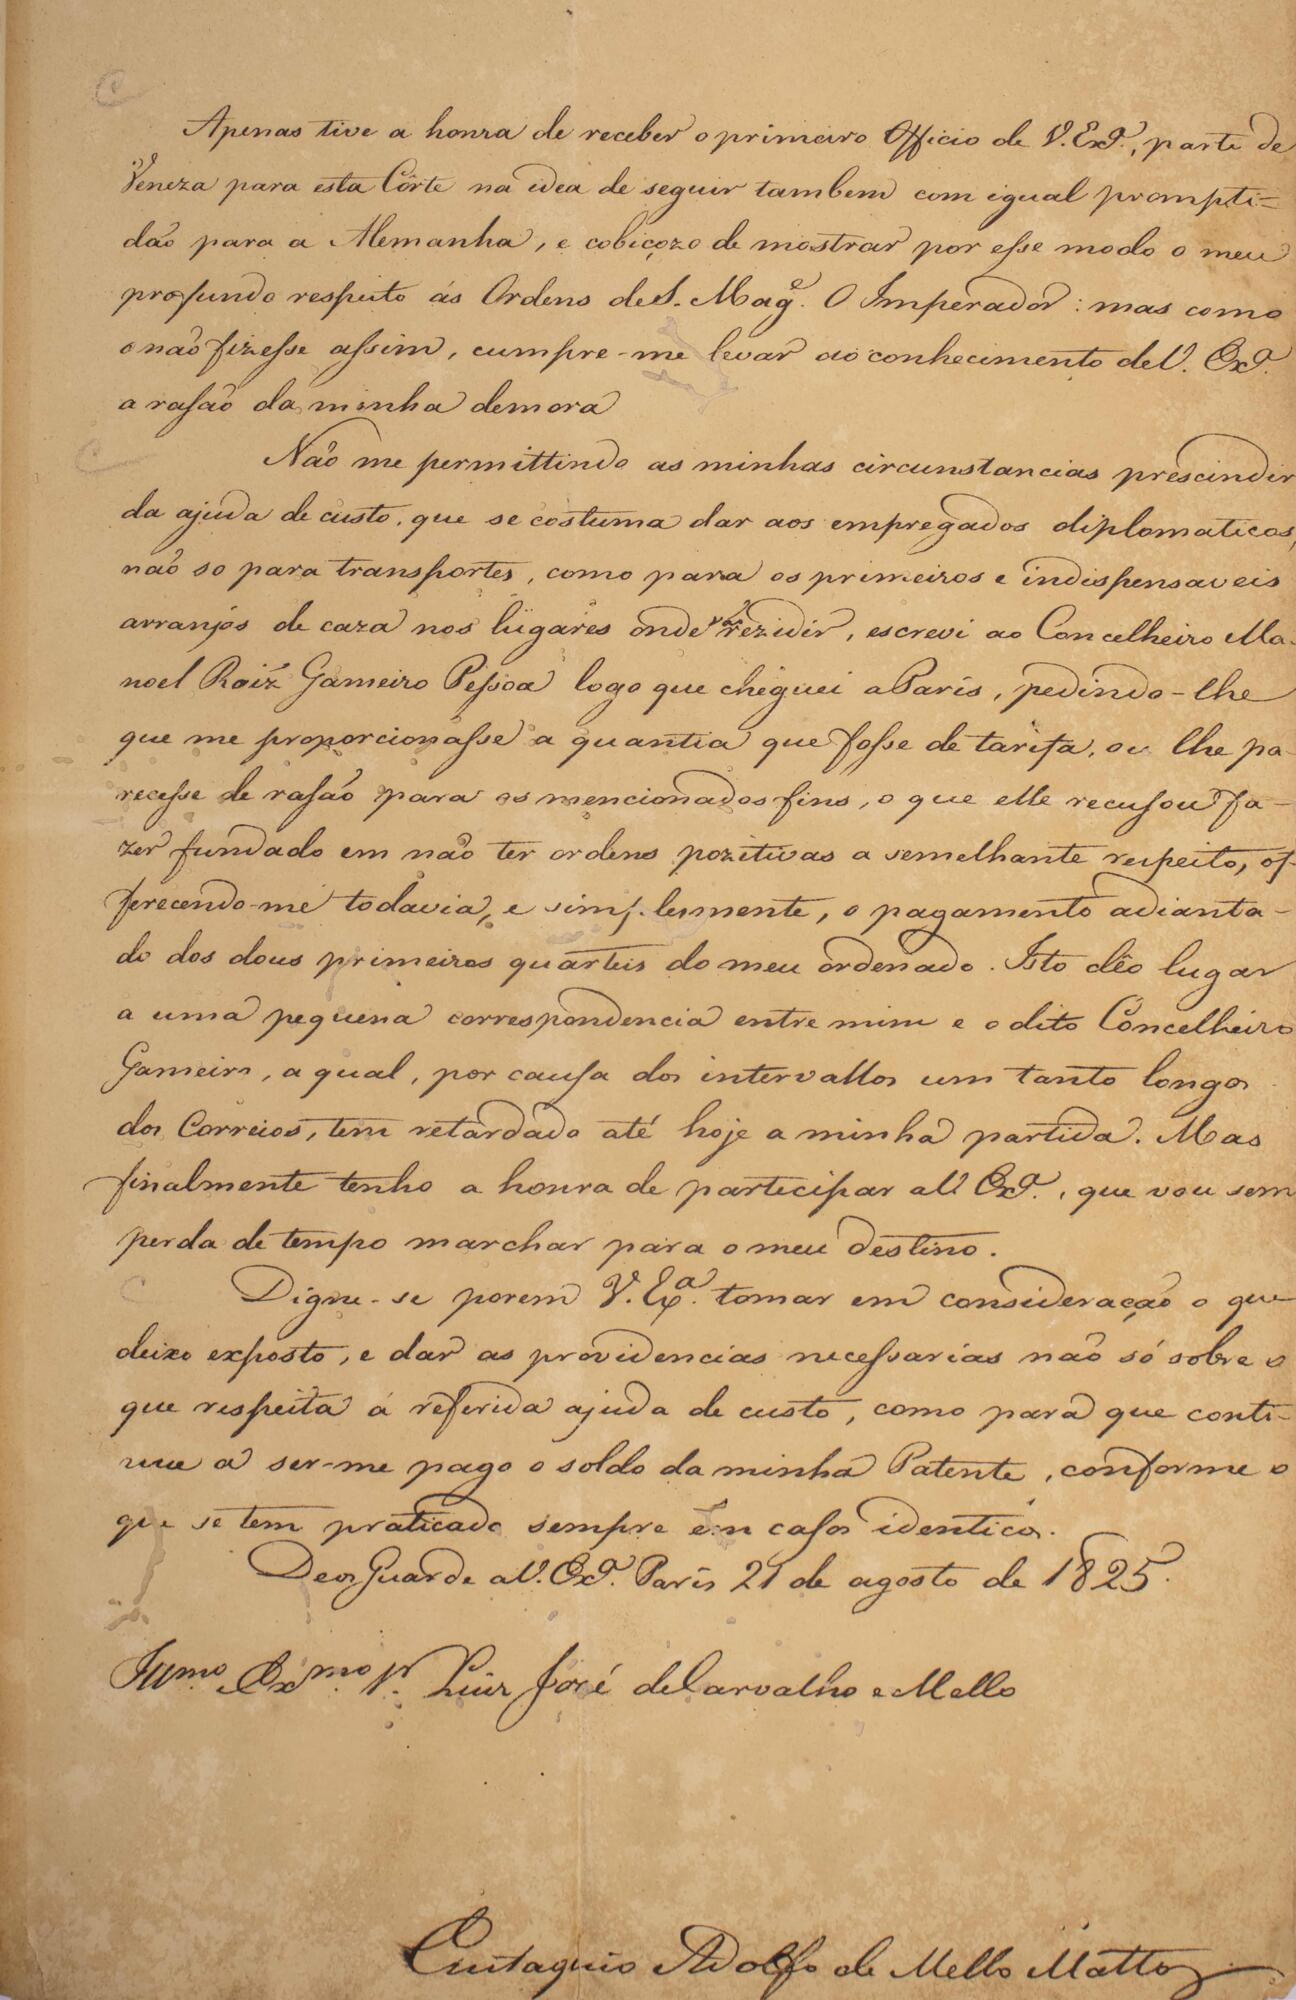 Apenas tive a honra de receber o primeiro Officio de V. Exª., parti de
Veneza para esta Côrte na idea de seguir tambem com igual prompti=
dão para a Alemanha, e cobiçozo de mostrar por esse modo o meu
profundo respeito ás Ordens de S. Magᵉ. O Imperador: mas como
o não fizesse assim, cumpre-me levar ao conhecimento de V. Exª.
a rasão da minha demora
Não me permittindo as minhas circunstancias prescindir
da ajuda de custo, que se costuma dar aos empregados diplomaticos,
não so para transportes, como para os primeiros e indispensaveis
arranjos de caza nos lugares onde vão rezidir, escrevi ao Concelheiro Ma-
noel Roiz Gameiro Pessoa logo que cheguei a Paris, pedindo-lhe
que me proporcionasse a quantia que fosse de tarifa, ou lhe pa-
recesse de rasão para os mencionados fins, o que elle recusou fa-
zer fundado em não ter ordens pozitivas a semelhante respeito, of-
ferecendo-me todavia, e simplesmente, o pagamento adianta-
do dos dous primeiros quarteis do meu ordenado. Isto dêo lugar
a uma pequena correspondencia entre mim e o dito Concelheiro
Gameiro, a qual, por causa dos intervallos um tanto longos
dos Correios, tem retardado até hoje a minha partida. Mas
finalmente tenho a honra de participar a V. Exª., que vou sem
perda de tempo marchar para o meu destino.
Digne-se porem V. Exª. tomar em consideração o que
deixo exposto, e dar as providencias necessarias não só sobre o
que respeita á referida ajuda de custo, como para que conti-
nue a ser-me pago o soldo da minha Patente, conforme o
que se tem praticado sempre em casos identicos.
Deos Guarde a V. Exª. Paris 21 de agosto de 1825.
Illmo. Exmo. Sr. Luiz José de Carvalho e Mello
Eustaquio Adolfo de Mello Mattos